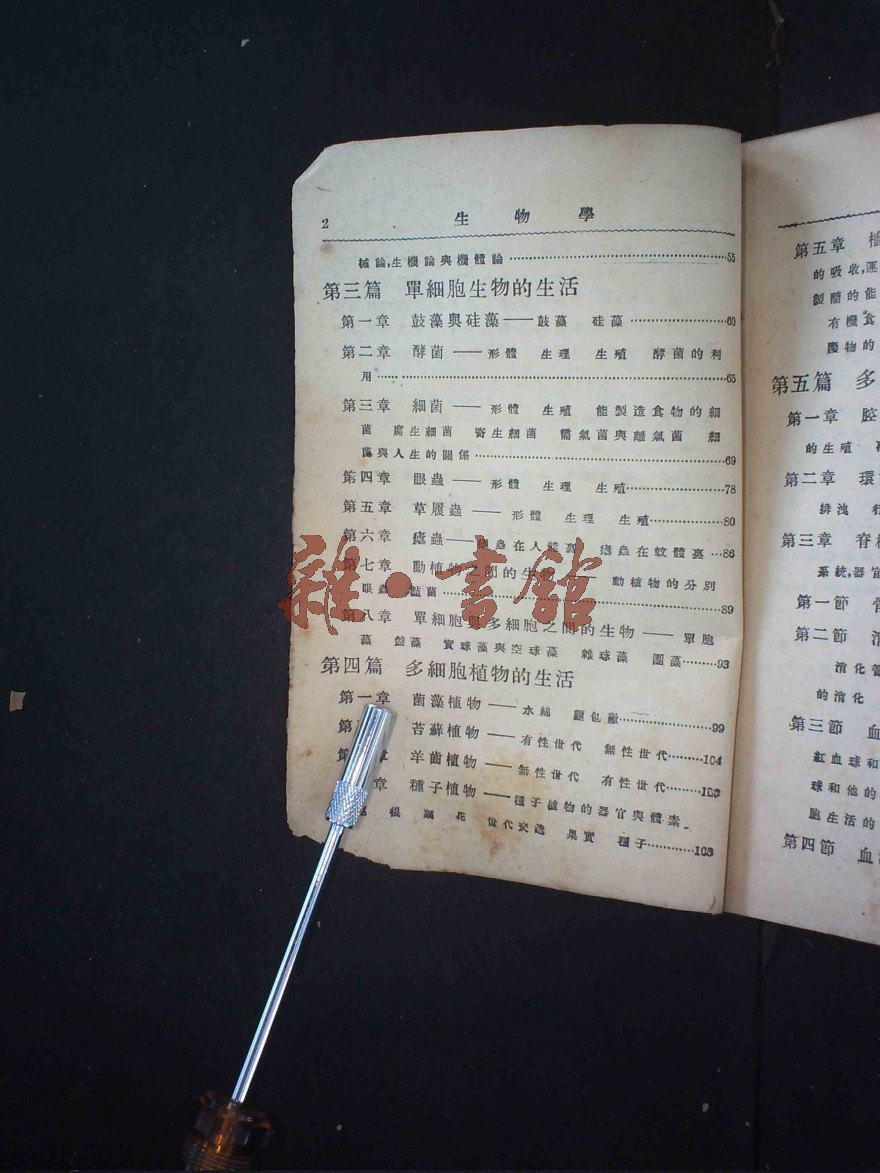 2 生物學
械論,生機論與機體論……55
第三篇 單細胞生物的生活
第一章 鼓藻與硅藻——鼓藻 硅藻……60
第二章 酵菌——形體 生理 生殖 酵菌的利
用……65
第三章 細菌——形體 生殖 能製造食物的細
菌 腐生細菌 寄生細菌 需氣菌與離氣菌 細
菌與人生的關係……69
第四章 眼蟲——形體 生理 生殖……78
第五章 草履蟲——形體 生理 生殖……80
第六章 瘧蟲——瘧蟲在人體裏 瘧蟲在蚊體裏…86
第七章 動植物之間的生物—— 動植物的分別
眼蟲 黏菌……89
第八章 單細胞與多細胞之間的生物——單胞
藻 盤藻 實球藻與空球藻 雜球藻 團藻……93
第四篇 多細胞植物的生活
第一章 菌藻植物——水綿 麵包黴……99
第 苔蘚植物——有性世代 無性世代……104
第 章 羊齒植物——無性世代 有性世代……
章 種子植物——種子植物的器官與體素
根 花 世代交迭 果實 種子……
第五章 植
的吸收,運
製醣的能
有機食
廢物的
第五篇 多
第一章 腔
的生殖
第二章 環
排洩
第三章 脊
系統,器官
第一節 骨
第二節 消
消化管
的消化
第三節 血
紅血球和
球和他的
胞生活的
第四節 血
雜·書館